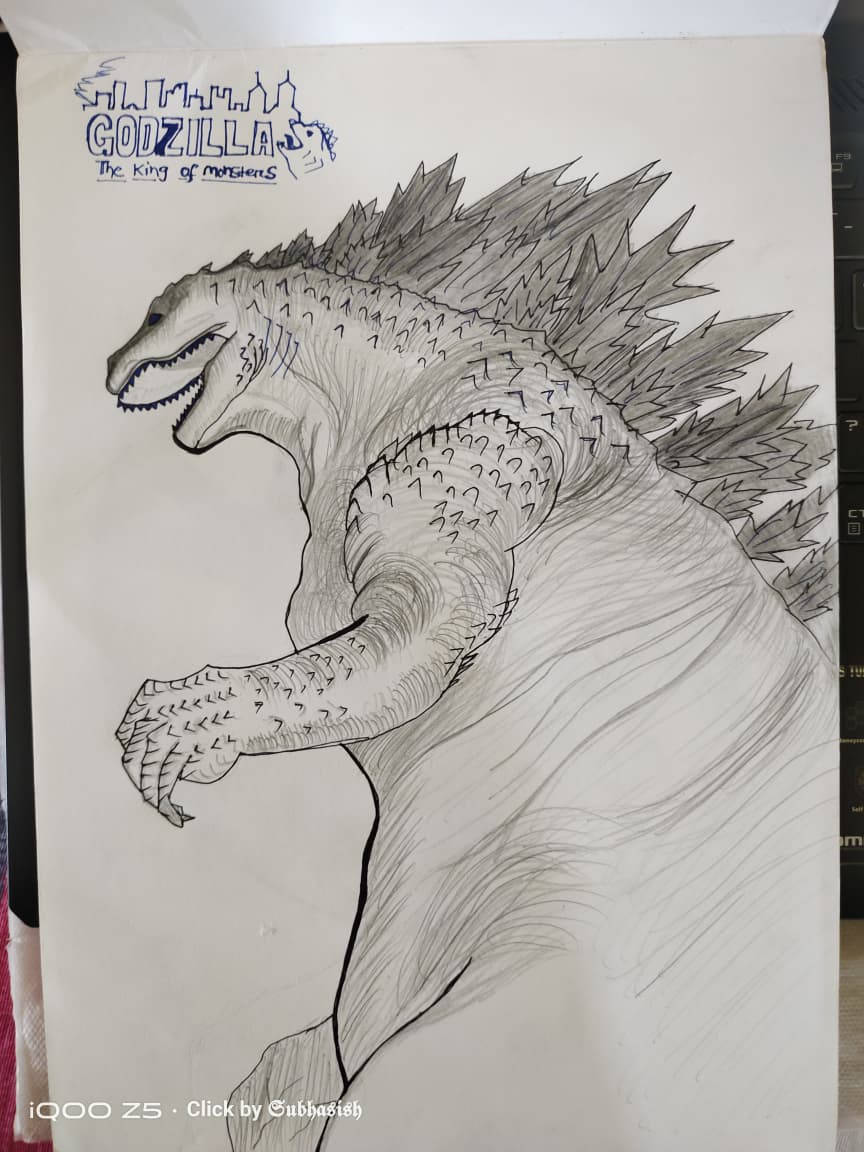 GODZILLA
The King of Monsters
F9
?
iQOO Z5 · Click by Subhasish